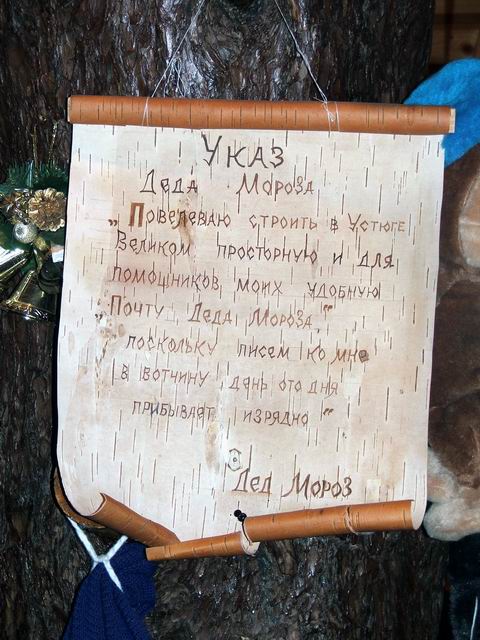 Указ
Деда Мороза
„Повелеваю строить в Устюге
Великом просторную и для
помощников моих удобную
"Почту Деда Мороза,"
поскольку писем ко мне
в вотчину день ото дня
прибывает изрядно"
Дед Мороз